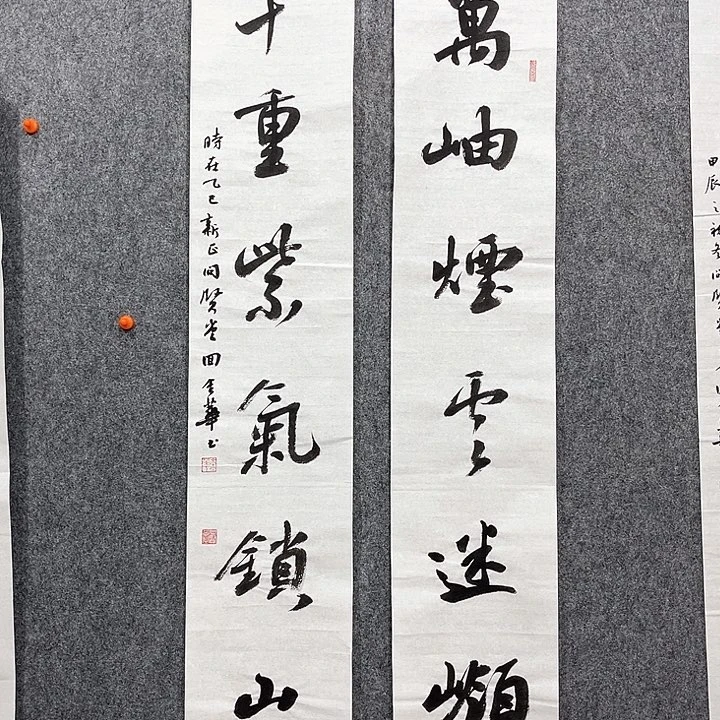 萬岫煙雲迷
千重紫氣鎖山
時在乙巳新正問賢堂 金華書
甲辰之